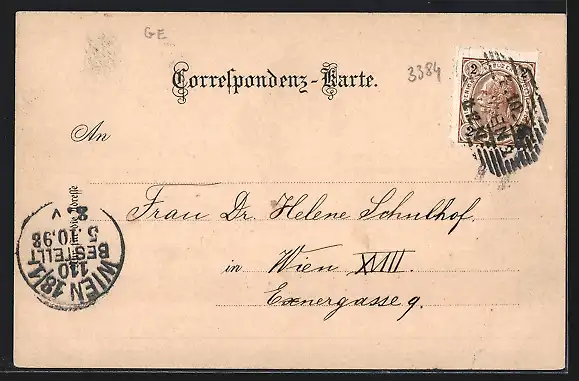 GE
3384
Correspondenz-Karte.
2 2
An
Frau Dr. Helene Schulhof.
in Wien XVIII.
Exnergasse 9.
die Adresse
WIEN 18/1
110
BESTELLT
5.10.98
8. V